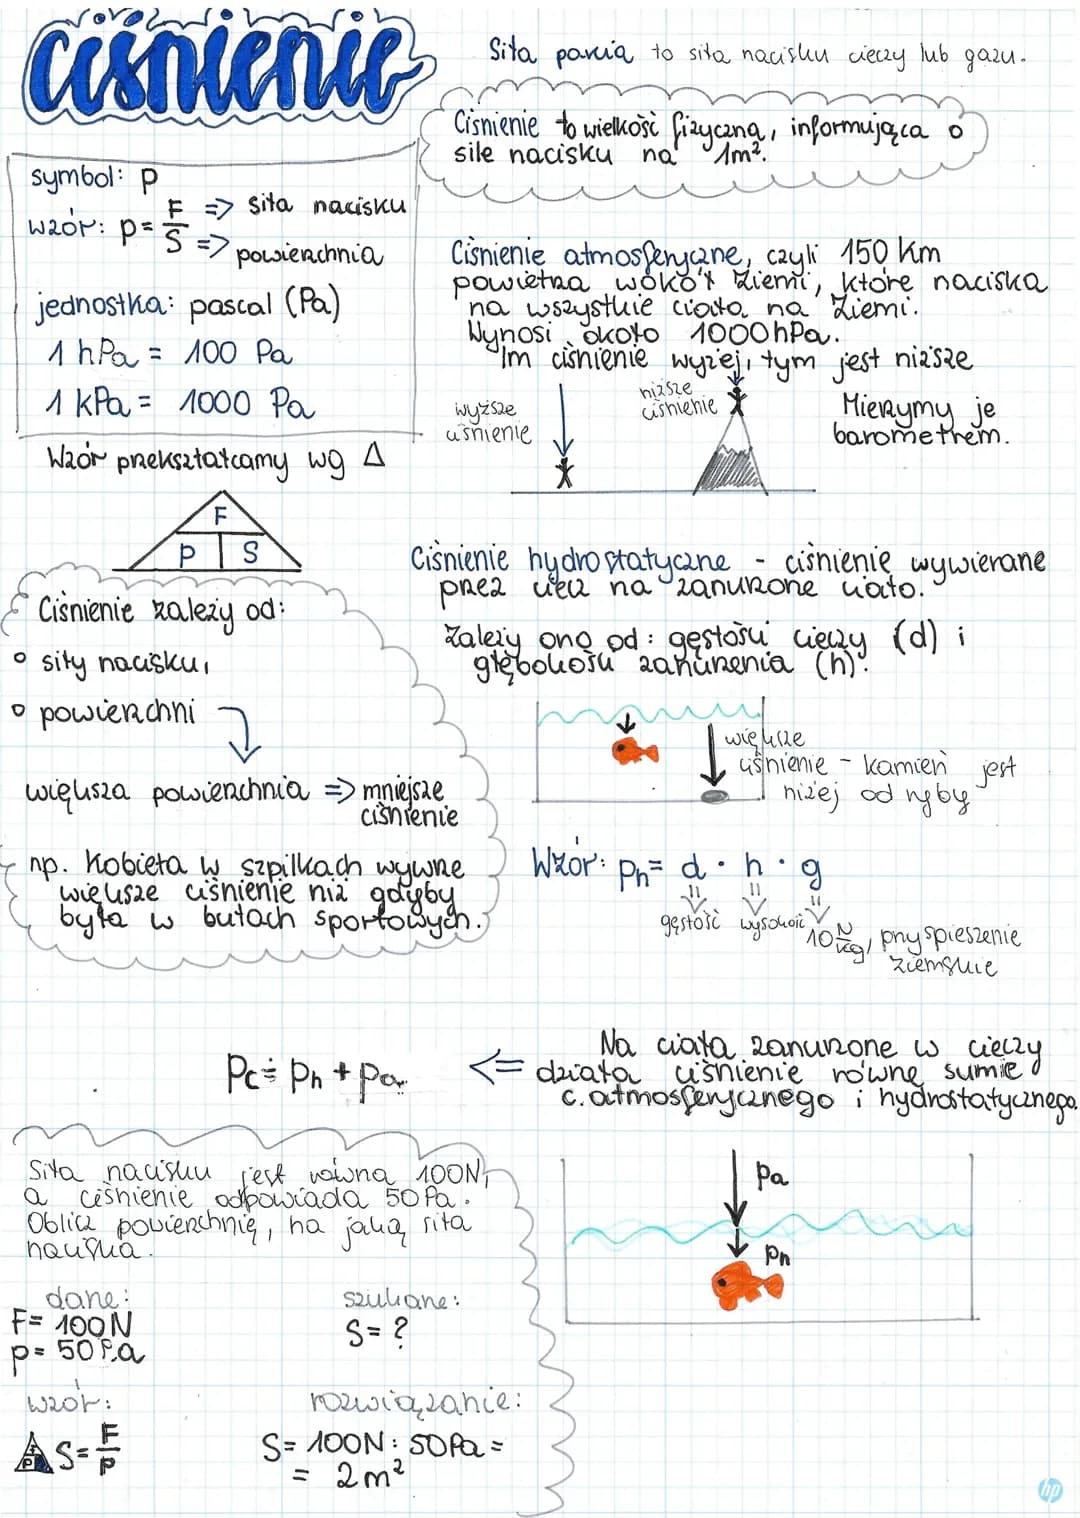 ciśnienie
Siła parcia to siła nacisku cieczy lub gazu.
Ciśnienie to wielkość fizyczna, informująca o
sile nacisku na 1m².
symbol: p
wzór: p = F/S => siła nacisku
=> powierzchnia
jednostka: pascal (Pa)
1 hPa = 100 Pa
1 kPa = 1000 Pa
Wzór przekształcamy wg Δ
F
p S
Ciśnienie zależy od:
° siły nacisku,
° powierzchni
większa powierzchnia => mniejsze
ciśnienie
np. Kobieta w szpilkach wywrze
większe ciśnienie niż gdyby
była w butach sportowych.
Ciśnienie atmosferyczne, czyli 150 km
powietrza wokół Ziemi, które naciska
na wszystkie ciała na Ziemi.
Wynosi około 1000 hPa.
Im ciśnienie wyżej, tym jest niższe
wyższe
ciśnienie
niższe
ciśnienie
Mierzymy je
barometrem.
Ciśnienie hydrostatyczne - ciśnienie wywierane
przez ciecz na zanurzone ciało.
Zależy ono od: gęstości cieczy (d) i
głębokości zanurzenia (h).
większe
ciśnienie - kamień jest
niżej od ryby
Wzór: ph = d · h · g
gęstość wysokość 10 N/kg, przyspieszenie
ziemskie
Na ciała zanurzone w cieczy
działa ciśnienie równe sumie
c. atmosferycznego i hydrostatycznego.
<=
Pc = Ph + Pa
Pa
Ph
Siła nacisku jest równa 100N,
a ciśnienie odpowiada 50 Pa.
Oblicz powierzchnię, na jaką siła
naciska.
dane:
F = 100N
p = 50 Pa
szukane:
S = ?
wzór:
S = F/p
rozwiązanie:
S = 100N : 50Pa =
= 2 m²
hp